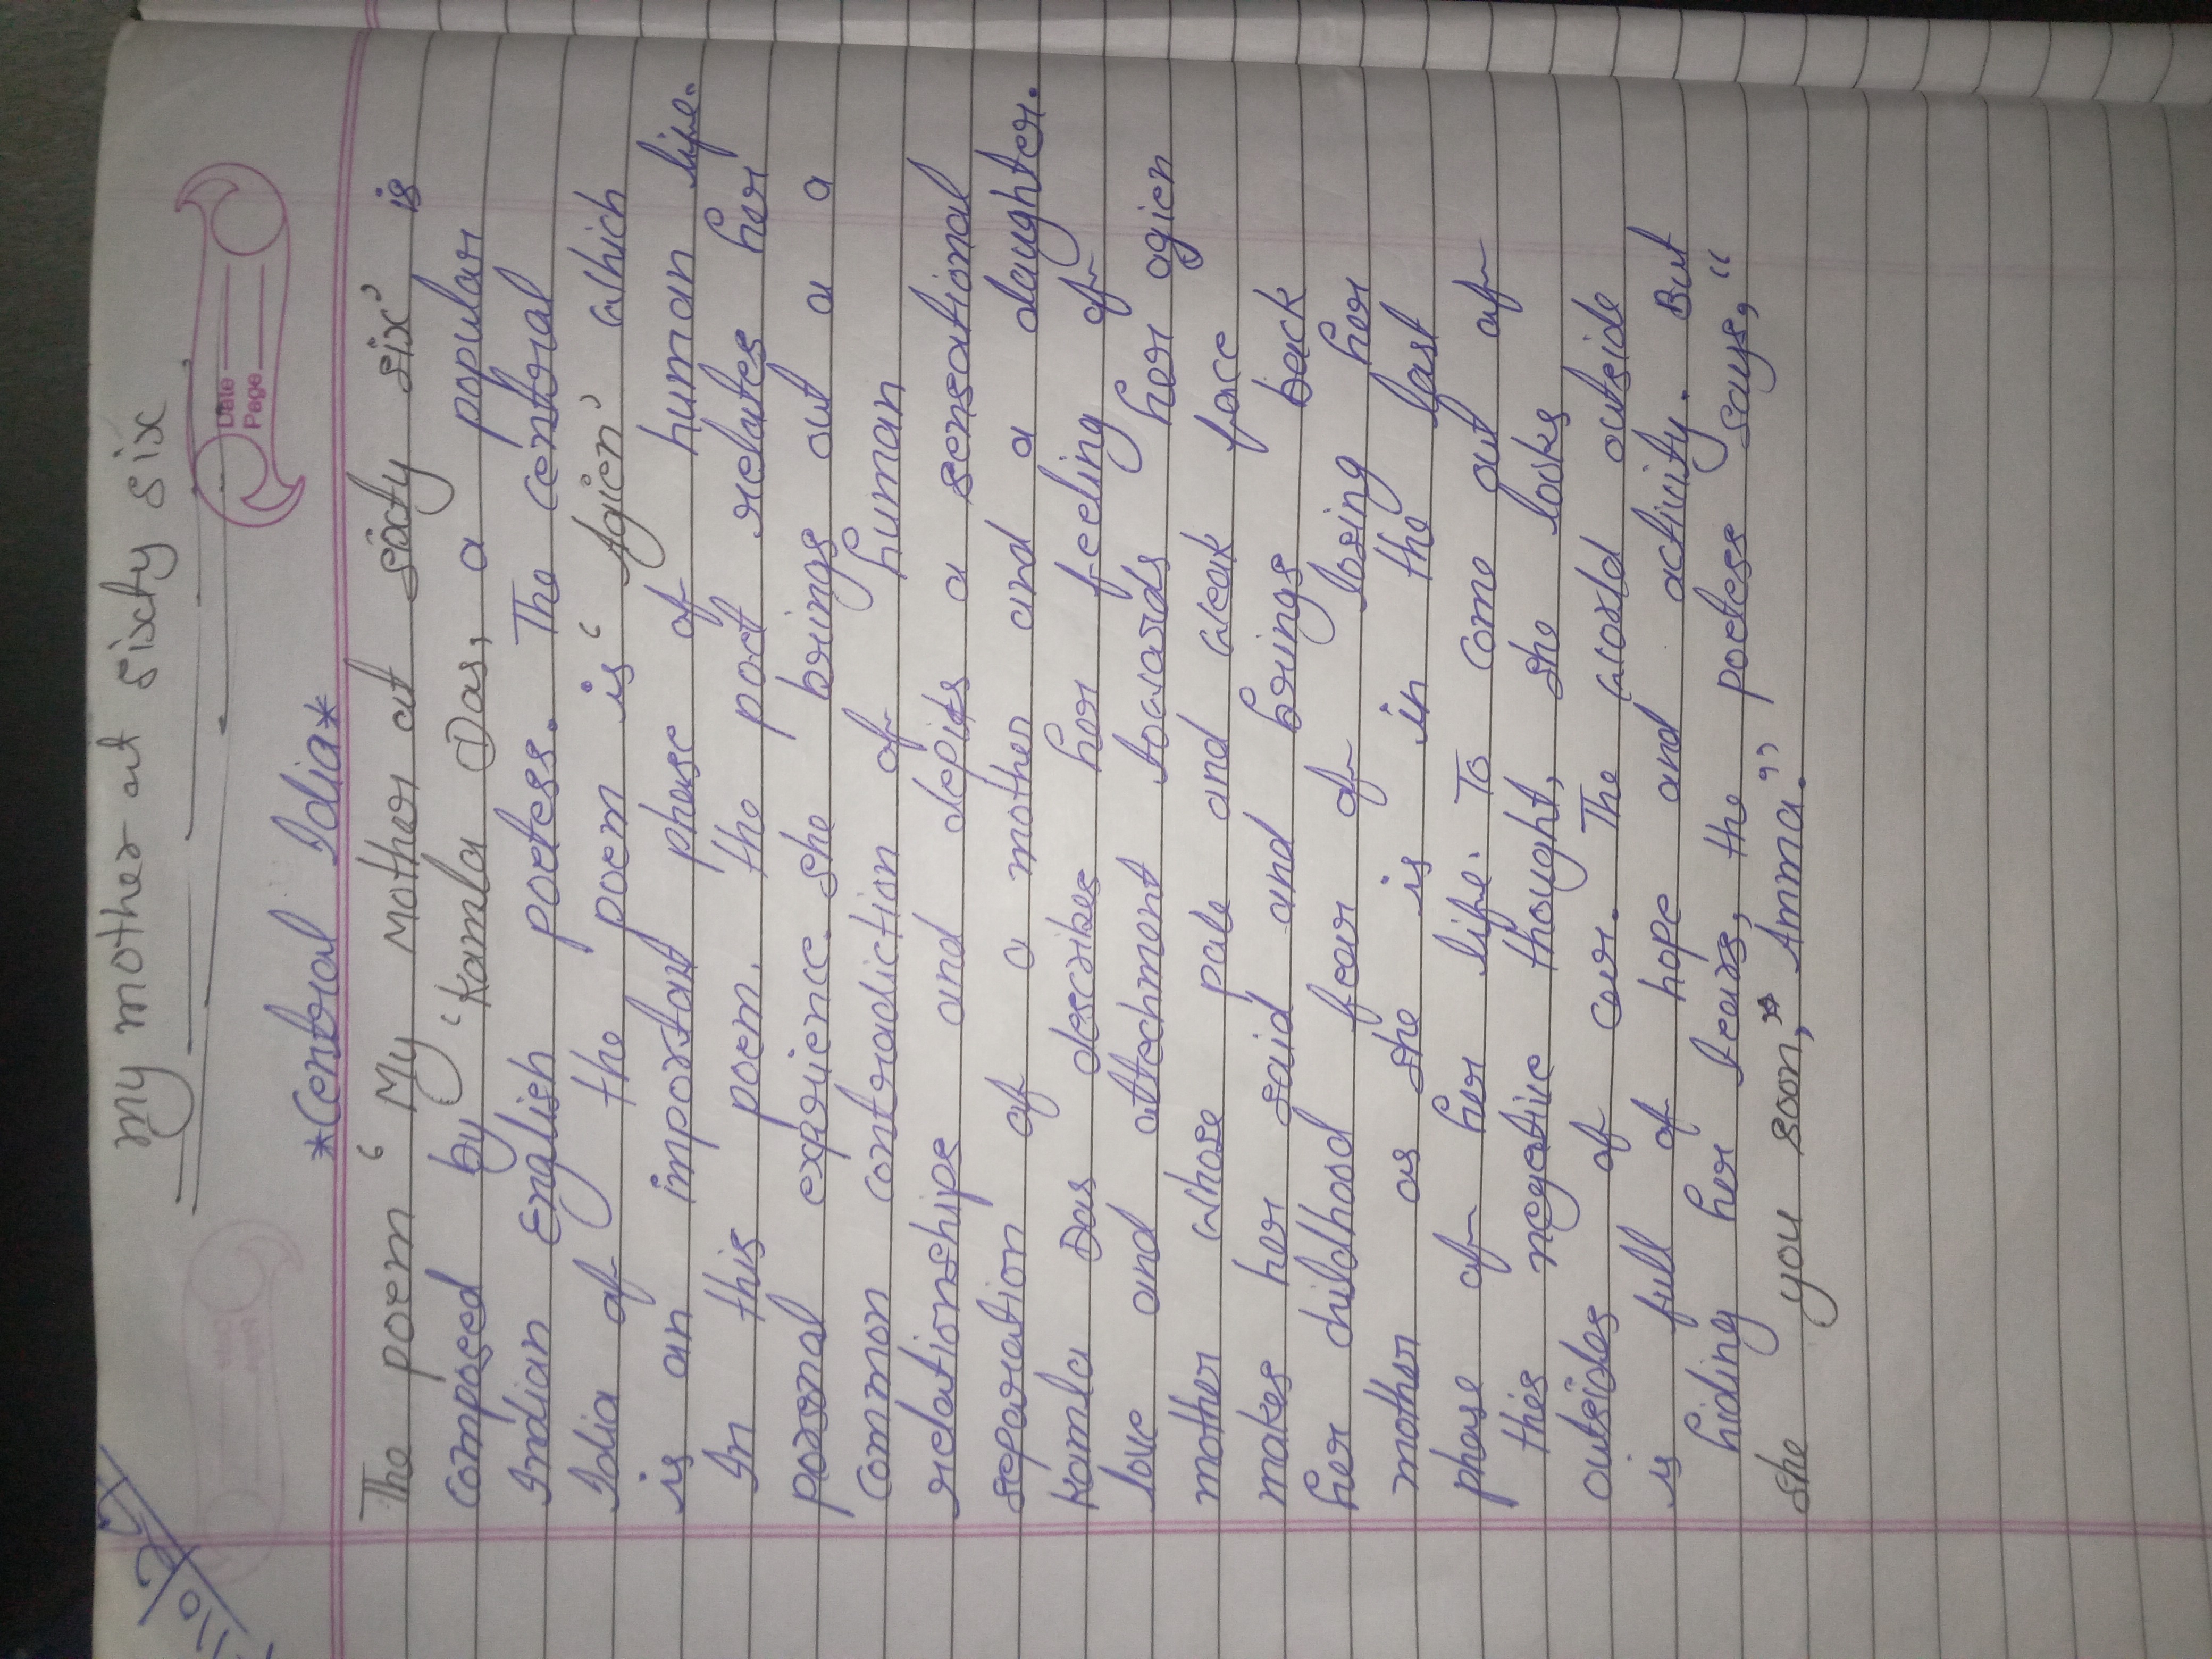 my mother at sixty six
Date
Page
*Central Idia*
The poem ‘My Mother at sixty six’ is
composed by ‘Kamla Das, a popular
Indian English poetess. The central
Idia of the poem is ‘Agien’ which
is an important phase of human life.
In this poem, the poet relates her
porsonal experience. she brings out a a
common contradiction of human
relationships and depits a sensational
separation of a mother and a daughter.
Kamla Das describes her feeling of
love and attechment towards her agien
mother whose pale and weak face
makes her said and brings back
her childhood fear of losing her
mother as she is in the last
phase of her life. To come out of
this negative thought, she looks
outsides of car. The world outside
is full of hope and activity. But
hiding her tears, the poetess says, “
she you soon, Amma.”